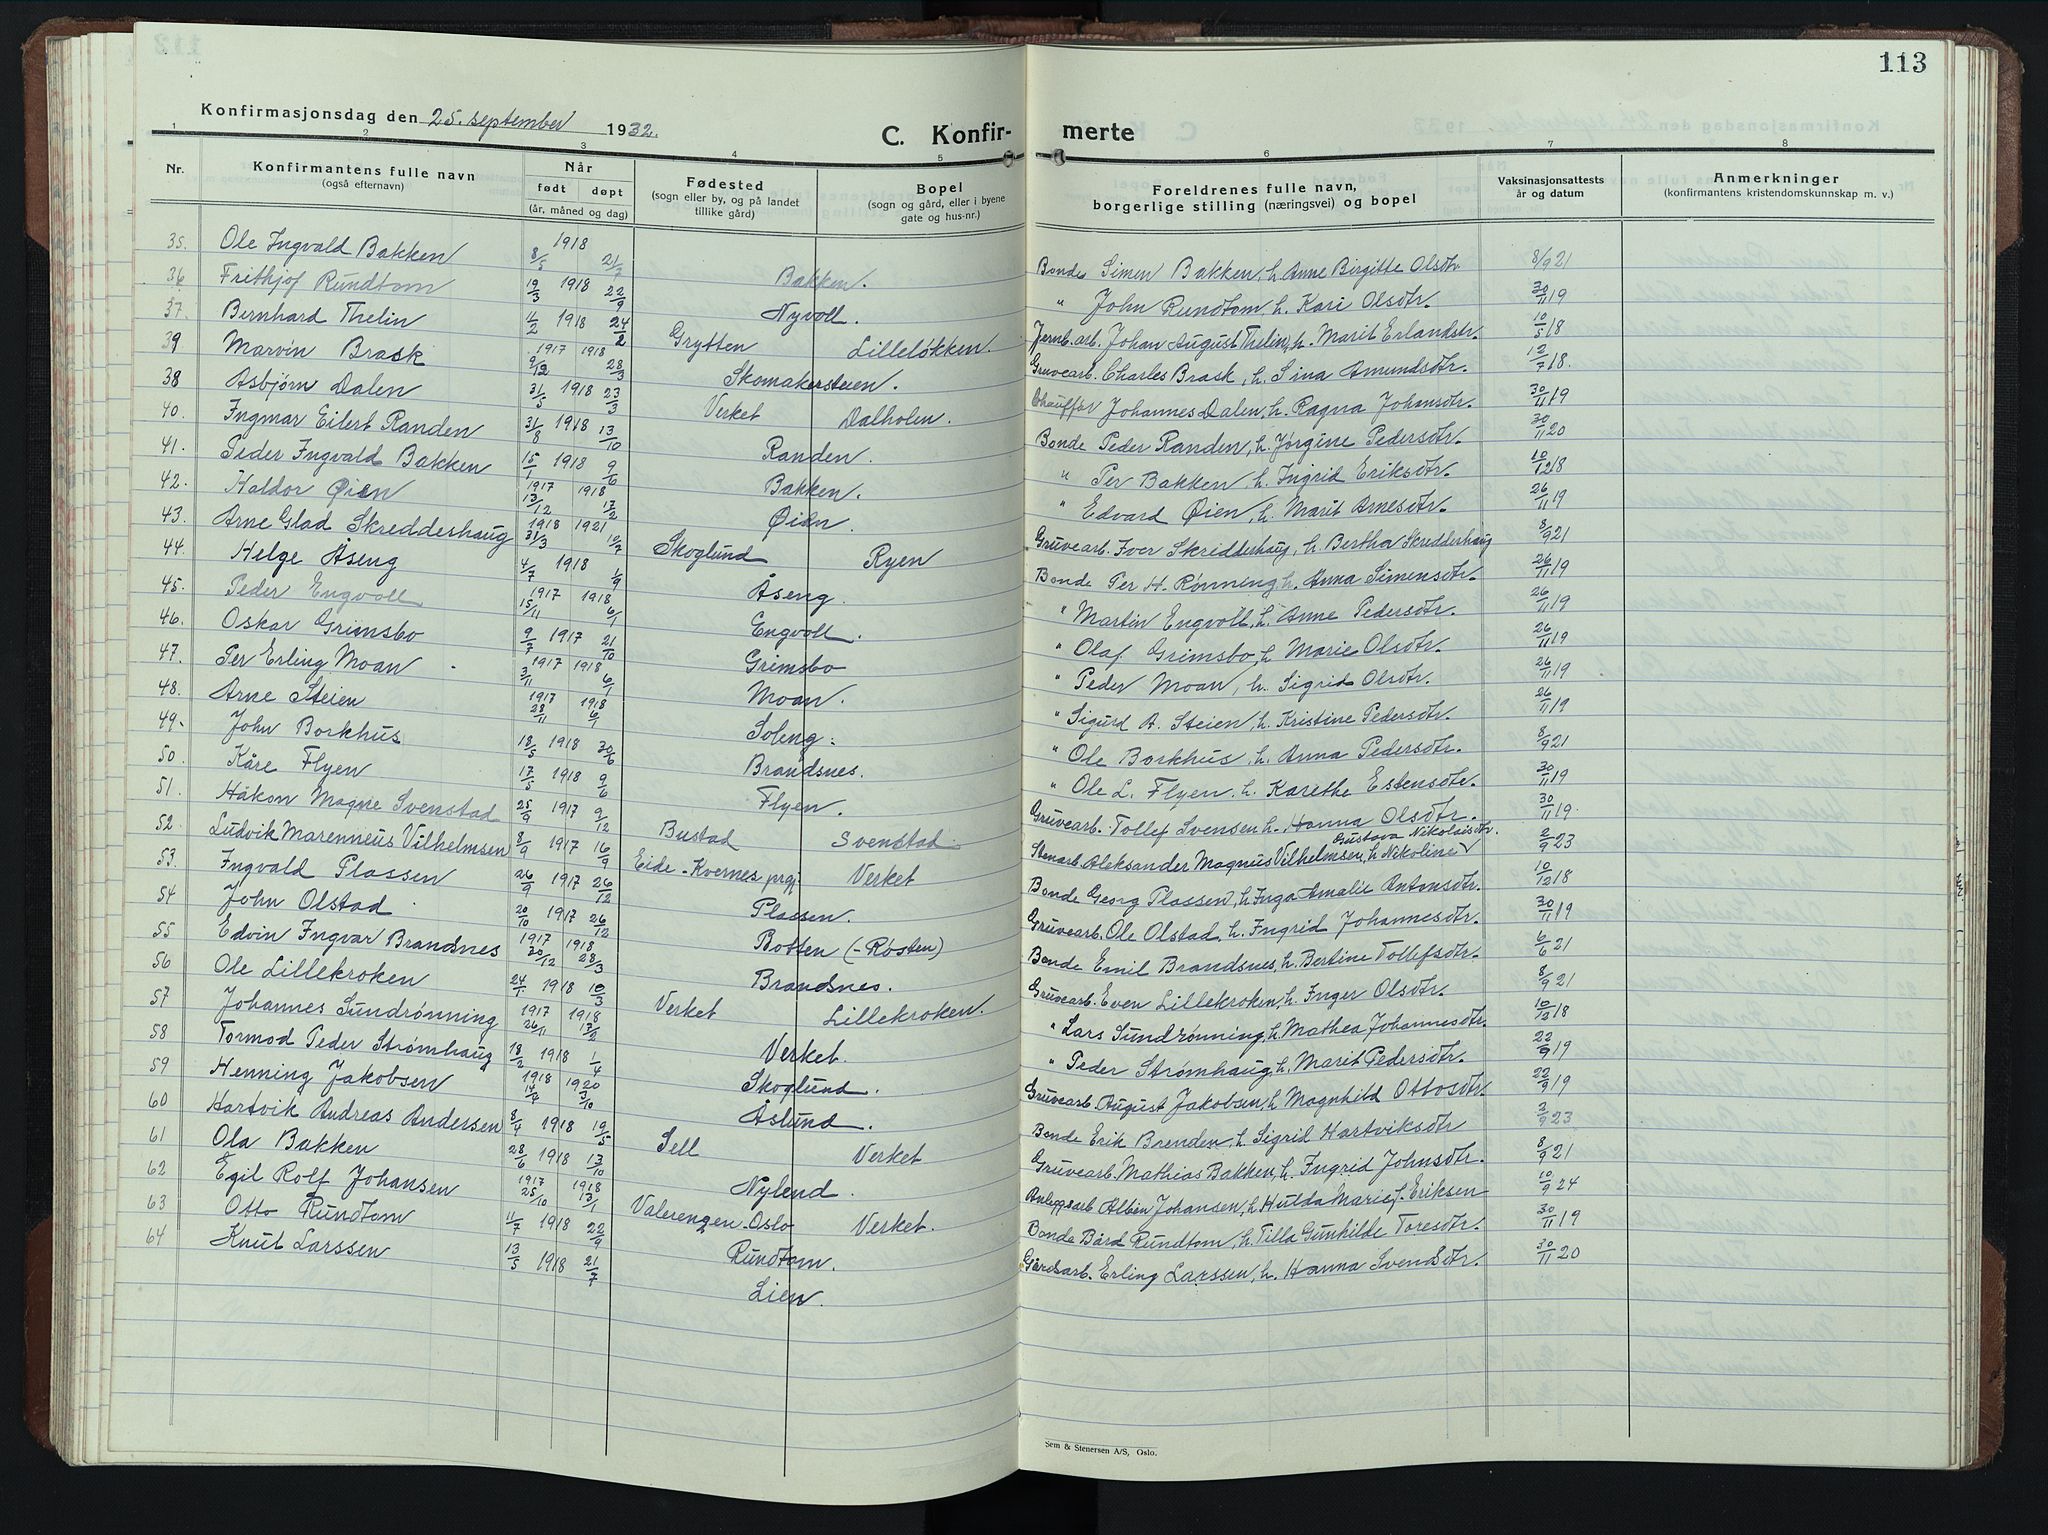 113
Konfirmasjonsdag den 25. september 1932.
C. Konfir- merte
1 2 3 4 5 6 7 8
Nr. Konfirmantens fulle navn (også efternavn) Når født døpt (år, måned og dag) Fødested (sogn eller by, og på landet tillike gård) Bopel (sogn og gård, eller i byene gate og hus-nr.) Foreldrenes fulle navn, borgerlige stilling (næringsvei) og bopel Vaksinasjonsattests år og datum Anmerkninger (konfirmantens kristendomskunnskap m. v.)
35. Ole Ingvald Bakken 8/5 1918 21/7 Bakken. Bonde Simen Bakken, h. Anne Birgitte Olsdtr. 8/9 21
36 Frithjof Rundtom 19/3 1918 22/9 Nyvoll. " John Rundtom, h. Kari Olsdtr. 30/11 19
37. Bernhard Thelin 11/2 1918 24/2 Grytten Lilleløkken. Jernb.arb. Johan August Thelin, h. Marit Erlandstr. 10/5 18
39 Marvin Brask 9/12 1917 1918 28/3 Skomakersteien. Gruvearb. Charles Brask, h. Sina Amundsdtr. 12/7 18.
38 Asbjørn Dalen 31/5 1918 23/3 Verket Dalholen. Chauffør Johannes Dalen, h. Ragna Johansdtr. 30/11 19
40. Ingmar Eilert Randen 31/8 1918 13/10 Randen. Bonde Peder Randen, h. Jørgine Pedersdtr. 30/11 20
41. Peder Ingvald Bakken 15/1 1918 9/6 Bakken. " Per Bakken, h. Ingrid Eriksdtr. 10/12 18
42. Haldor Øien 1917 13/12 1918 17/2 Øien. " Edvard Øien, h. Marit Arnesdtr. 26/11 19
43. Arne Glad Skreddeshaug 1918 31/3 1921 10/7 Skoglund Ryen Gruvearb. Iver Skridderhaug, h. Bertha Skredderhaug 8/9 21
44. Helge Åseng 4/7 1918 1/9 Åseng. Bonde Per H. Rønning, h. Anna Simensdtr. 26/11 19
45. Peder Engvoll 1917 15/11 1918 6/1 Engvoll. " Martin Engvoll, h. Anne Pedersdtr. 26/11 19
46. Oskar Grimsbo 9/7 1917 21/10 Grimsbo " Olaf Grimsbo, h. Marie Olsdtr. 26/11 19
47. Per Erling Moan 3/11 1917 1918 6/1 Moan. " Peder Moan, h. Sigrid Olsdtr. 26/11 19
48. Arne Steien 1917 28/11 1918 6/1 Soleng. " Sigurd A. Steien, h. Kristine Pedersdtr. 26/11 19
49. John Borkhus 18/5 1918 30/6 Brandsnes. " Ole Borkhus, h. Anna Pedersdtr. 8/9 21
50. Kåre Flyen 17/5 1918 9/6 Flyen. " Ole L. Flyen, h. Karethe Estensdtr. 30/11 19
51. Håkon Magne Svenstad 25/9 1917 9/12 Bustad Svenstad Gruvearb. Tollef Svensen h. Hanna Olsdtr. 30/11 19.
52. Ludvik Marenneus Vilhelmsen 8/9 1917 16/9 Eide-Kvernes prgj. Verket Stenarb. Aleksander Magnus Vilhelmsen, h. Nikoline Gustava Nikolaisdtr. 2/9 23
53. Ingvald Plassen 26/9 1917 26/12 Plassen. Bonde Georg Plassen, h. Inga Amalie Antonsdtr. 10/12 18
54 John Olstad 20/10 1917 26/12 Botten (-Røsten) Gruvearb. Ole Olstad, h. Ingrid Johannesdtr. 30/11 19
55 Edvin Ingvar Brandsnes 1917 20/12 1918 28/3 Brandsnes. Bonde Emil Brandsnes, h. Bertine Tollefsdtr. 6/6 21
56 Ole Lillekroken 24/1 1918 10/3 Verket Lillekroken. Gruvearb. Even Lillekroken, h. Inger Olsdtr. 8/9 21
57 Johannes Sundrønning 1917 26/11 1918 17/2 Verket. " Lars Sundrønning, h. Mathea Johannesdtr. 10/12 18
58 Tormod Peder Strømhaug 18/2 1918 1/4 Skoglund. " Peder Strømhaug, h. Marit Pedersdtr. 22/9 19
59 Henning Jakobsen 1918 14/7 1920 3/10 Åslund. Gruvearb. August Jakobsen, h. Magnhild Ottosdtr. 22/9 19
60 Hartvik Andreas Andersen 8/4 1918 19/5 Sell Verket Bonde Erik Brenden, h. Sigrid Hartviksdtr 2/9 23
61 Ola Bakken 28/6 1918 13/10 Nylend. Gruvearb. Mathias Bakken, h. Ingrid Johnsdtr. 8/9 21
62 Egil Rolf Johansen 1917 25/10 1918 13/1 Valerengen-Oslo Verket. Anleggsarb Albin Johansen, h. Hulda Marie f. Eriksen 10/9 24
63 Otto Rundtom 11/7 1918 22/9 Rundtom. Bonde Bård Rundtom, h. Tilla Gunhilde Toresdtr. 30/11 19
64 Knut Larssen 13/5 1918 21/7 Lien. Gårdsarb. Erling Larssen, h. Hanna Svensdtr. 30/11 20
Sem & Stenersen A/S, Oslo.